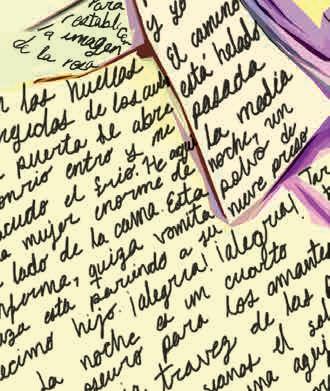 Para
restablec
a imagen
de la rosa
y yo
El camino
está helado
pasada
la media
noche, un
polvo de
nieve preso
n las huellas
ngidas de los aus
puerta se abre
onrio entro y me
acudo el frio. He aqui
a mujer enorme de
lado de la cama. Esta
nforma, quiza vomita
iza esta pariendo a su
ecimo hijo. ¡alegria! ¡alegria! Tar
la noche es un cuarto
oscuro para los amantes
travez de las
el sol
una agui